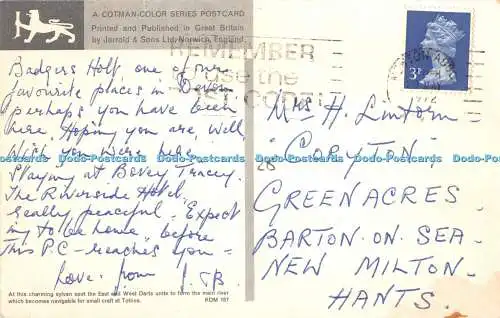 A COTMAN-COLOR SERIES POSTCARD
Printed and Published in Great Britain
by Jarrold & Sons Ltd, Norwich, England
REMEMBER
use the
NEWTON ABBOT
1972
3P
Badgers Holt, one of our
favourite places in Devon
perhaps you have been
here. Hoping you are, well
Wish you were here
Staying at Bovey Tracey.
The Riverside Hotel.
Really peaceful. Expect
ing to be home, before
This P.C. reaches you –
Love from J. & B.
Mrs H. Lintorn
"CORYTON"
28
GREENACRES
BARTON-ON-SEA
NEW MILTON
HANTS.
Dodo-Postcards Dodo-Postcards Dodo-Postcards Dodo-Postcards Dodo-Postcards Dodo-Postcards Dodo-Postcards
At this charming sylvan spot the East and West Darts unite to form the main river
which becomes navigable for small craft at Totnes.
KDM 167